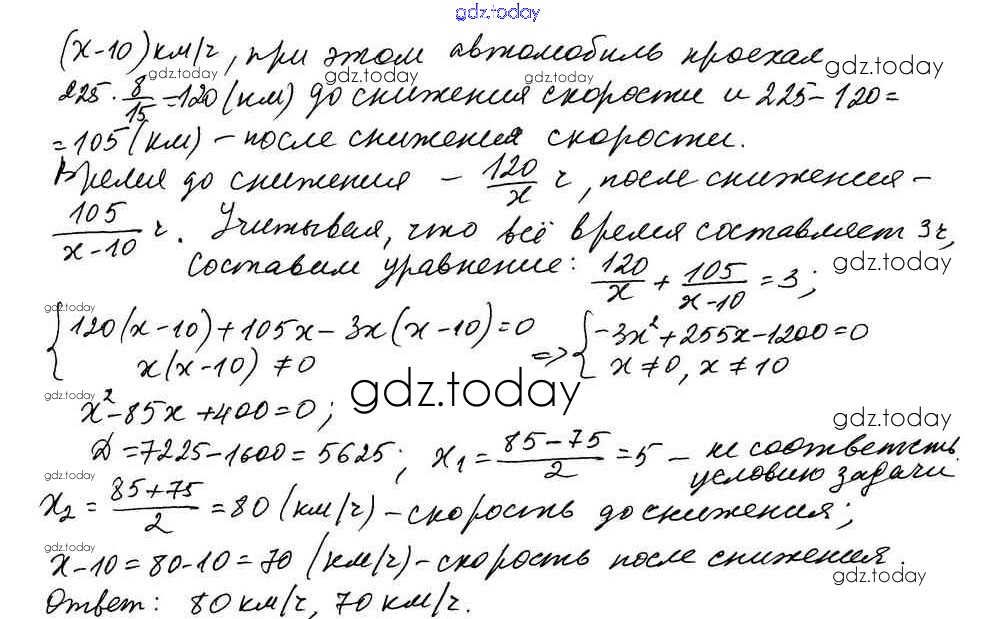 gdz.today
(x-10) км/ч, при этом автомобиль проехал
225 · 8/15 = 120 (км) до снижения скорости и 225-120=
=105 (км) – после снижения скорости.
Время до снижения – 120/x ч, после снижения –
105/(x-10) ч. Учитывая, что всё время составляет 3ч,
составим уравнение: 120/x + 105/(x-10) = 3;
{120(x-10)+105x-3x(x-10)=0 {-3x²+255x-1200=0
x(x-10) ≠ 0 => x≠0, x≠10
x²-85x+400=0;
D=7225-1600=5625; x₁ = (85-75)/2 = 5 – не соответств.
условию задачи
x₂ = (85+75)/2 = 80 (км/ч) – скорость до снижения;
x-10=80-10=70 (км/ч) – скорость после снижения.
Ответ: 80 км/ч, 70 км/ч.
gdz.today
gdz.today
gdz.today
gdz.today
gdz.today
gdz.today
gdz.today
gdz.today
gdz.today
gdz.today
gdz.today
gdz.today
gdz.today